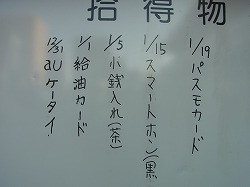 拾得物
1/19 パスモカード
1/15 スマートホン(黒)
1/5 小銭入れ(茶)
1/1 給油カード
12/31 auケータイ